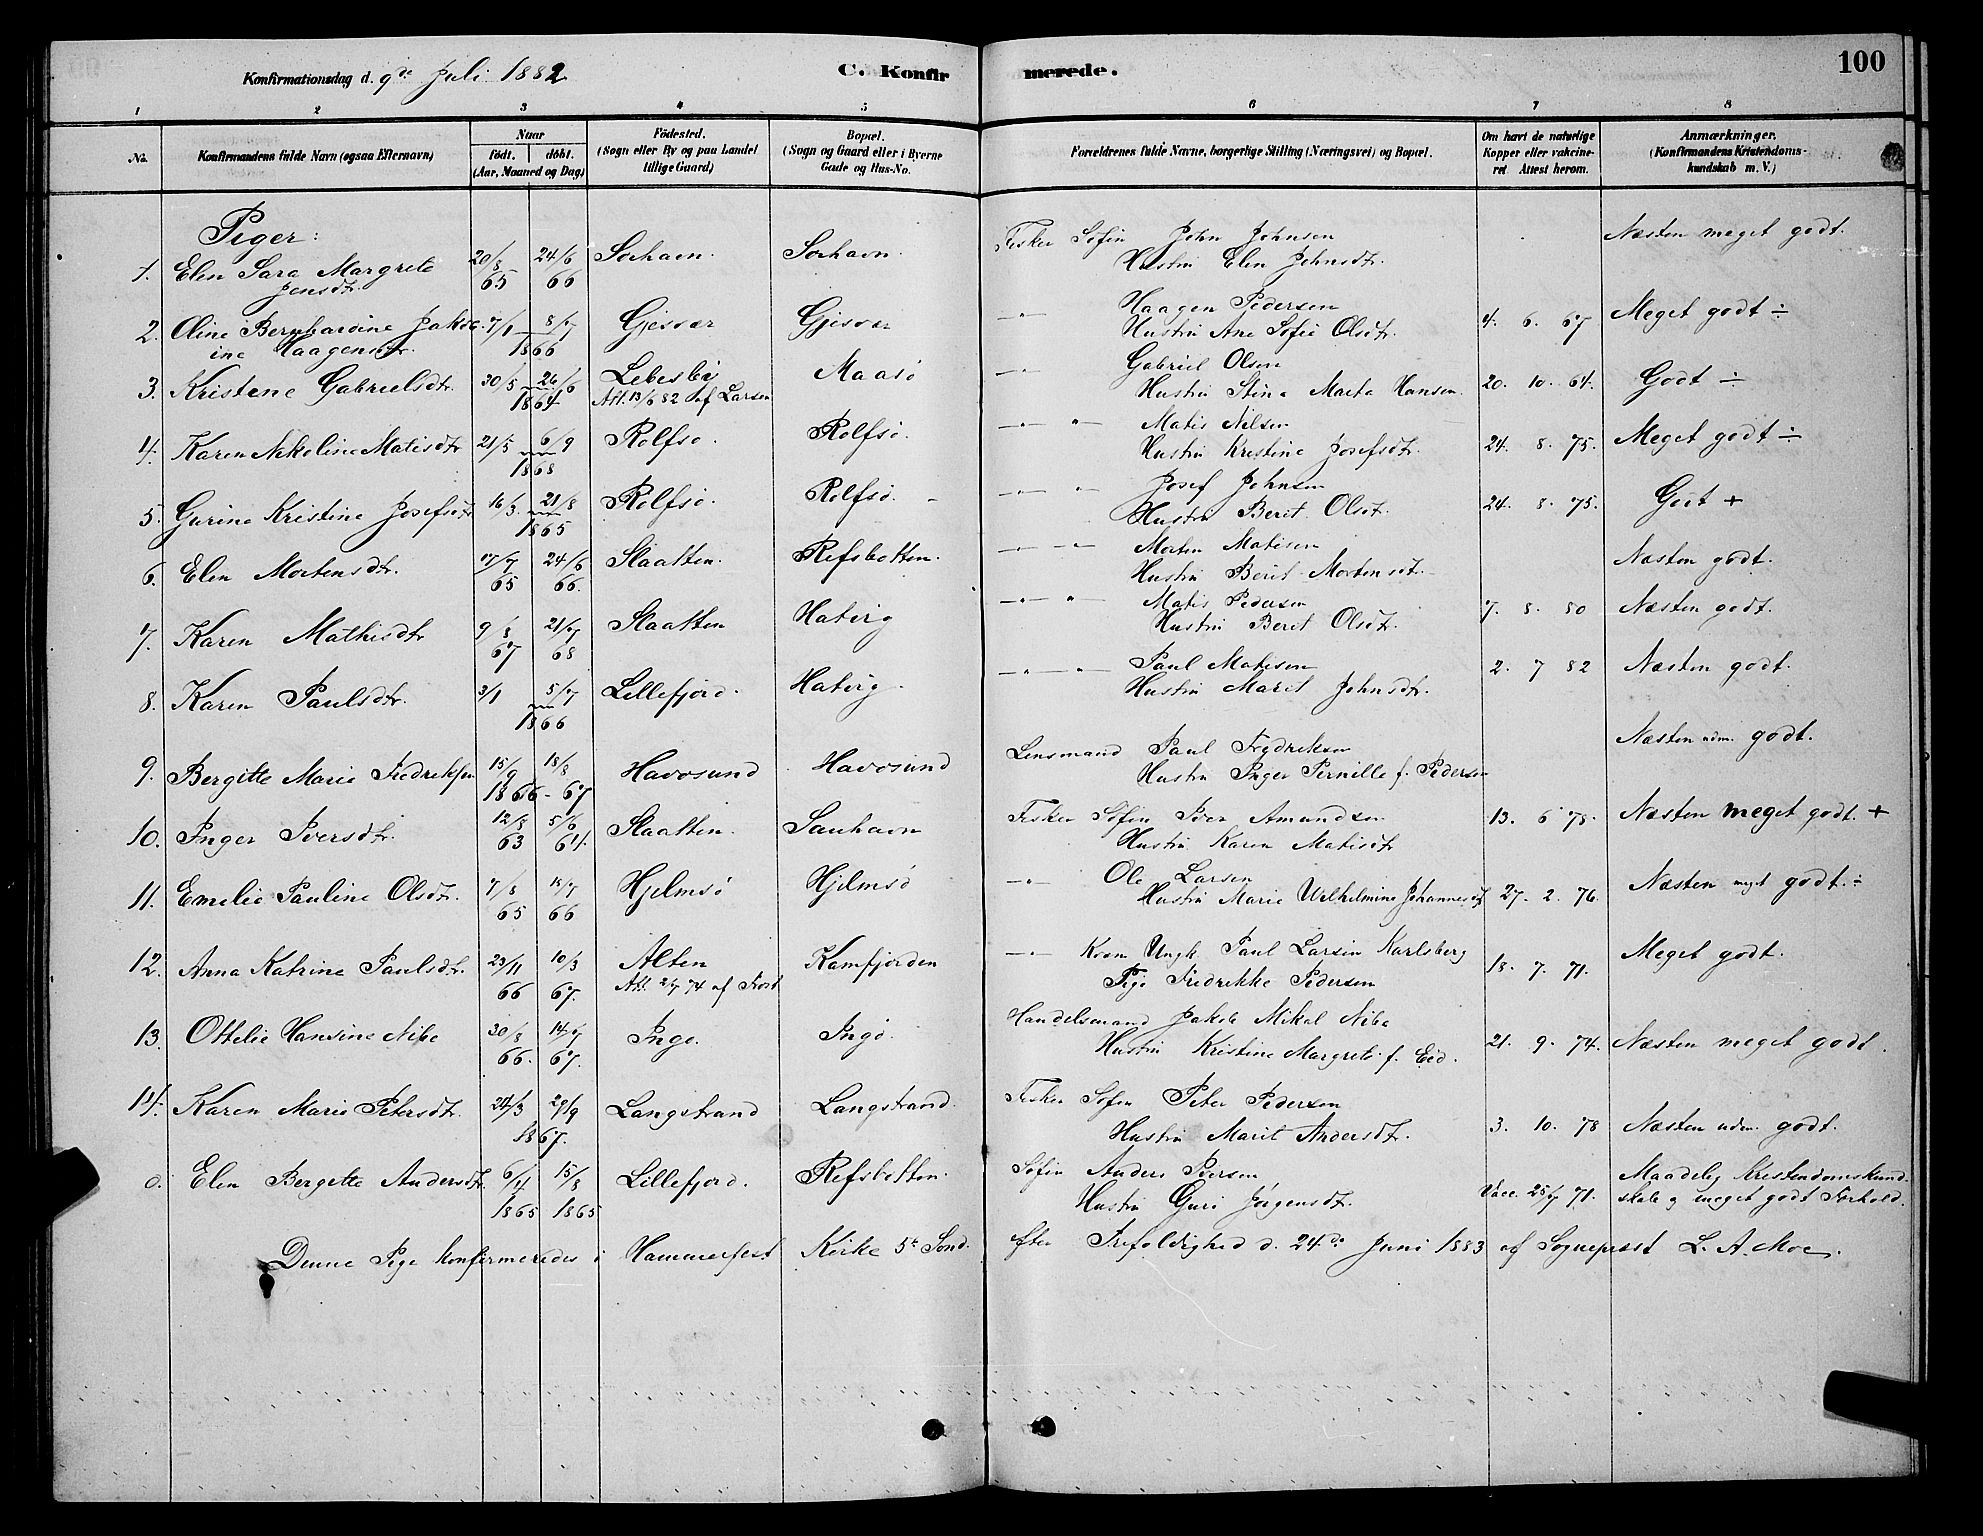 Konfirmationsdag d. 9de Juli 1882
C. Konfirmerede.
100
1 2 3 4 5 6 7 8
No. Konfirmandens fulde Navn (ogsaa Efternavn) Naar født. døbt. (Aar, Maaned og Dag) Fødested. (Sogn eller By og paa Landet tillige Gaard) Bopæl. (Sogn og Gaard eller i Byerne Gade og Hus-No. Forældrenes fulde Navne, borgerlige Stilling (Næringsvei) og Bopæl. Om havt de naturlige Kopper eller vakcineret Attest herom. Anmærkninger. (Konfirmandens Kristendomskundskab m. V.)
Piger:
1. Elen Sara Margrete 20/8 24/6 Sorhavn. Sorhavn. Fisker Søfin John Johnsen Næsten meget godt.
Jensdtr. 65 66 Hustru Elen Johnsdtr.
2. Oline Bernhardine Jakob- 7/1 8/7 Gjesvær Gjesvær —"— Haagen Pedersen 4. 6. 67 Meget godt ÷
ine Haagensdtr. 1866 Hustru Ane Sofie Olsdtr.
3. Kristene Gabrielsdtr. 30/5 26/6 Lebesby Maasø —"— Gabriel Olsen 20. 10. 64. Godt ÷
1864 Att. 13/6 82 af Larsen Hustru Stina Marta Hansen.
4. Karen Nikoline Matisdtr 21/5 6/9 Rolfsø. Rolfsø. —"— " Matis Nilsen 24. 8. 75. Meget godt ÷
1868 Hustru Kristine Josefsdtr.
5. Gurine Kristine Josefsdtr 16/3. 21/8 Rolfsø. Rolfsø. —"— " Josef Johnsen 24. 8. 75. Godt +
1865 Hustru Berit Olsdtr.
6. Elen Mortensdtr. 17/7 24/6 Slaatten. Refsbotten. —"— " Morten Matisen Næsten godt.
65 66. Hustru Berit Mortensdtr.
7. Karen Mathisdtr 9/8 21/7 Slaatten Hatvig —"— " Matis Pedersen 7. 8. 80 Næsten godt.
67 68 Hustru Berit Olsdtr.
8. Karen Paulsdtr. 3/1 5/7 Lillefjord. Hatvig. —"— " Paul Matisen 2. 7 82 Næsten godt.
1866 Hustru Marit Johnsdtr.
9. Bergitte Marie Fredriksen 15/9 18/8 Havøsund Havøsund Lensmand Paul Fredriksen Næsten udm. godt.
1866 - 67 Hustru Inger Pernille f. Pedersen
10. Inger Iversdtr. 12/8 5/6 Slaatten. Sauhavn Fisker Søfin Iver Amundsen 13. 6 78. Næsten meget godt. +
63 64. Hustru Karen Matisdtr
11. Emelie Pauline Olsdtr. 7/8 15/7 Hjelmsø Hjelmsø —"— Ole Larsen 27. 2. 76. Næsten mgt godt. ÷
65 66 Hustru Marie Wilhelmine Johannesdtr
12. Anna Katrine Paulsdtr. 23/11 10/3 Alten Kamfjorden —"— Kvæn Ungk. Paul Larsen Karlsberg 18. 7. 71. Meget godt.
66 67. Att. 2/7 74 af Frost Pige Fredrikke Pedersen
13. Ottelie Hansine Nibe 30/8 14/7 Ingø. Ingø. Handelsmand Jakob Mikal Nibe 21. 9. 74. Næsten meget godt.
66. 67. Hustru Kristine Margrete f. Eid.
14. Karen Marie Petersdtr. 24/3 29/9 Langstrand Langstrand. Fisker Søfin Peter Pedersen 3. 10. 78 Næsten udm. godt.
1867. Hustru Marit Andersdtr.
0. Elen Bergette Andersdtr. 6/4 15/8 Lillefjord. Refsbotten. Søfin Anders Persen Vacc. 25/7 71. Maadelig Kristendomskund-
1865 1865 Hustru Guri Jørgensdtr. skab og meget godt Forhold.
Denne Pige konfirmeredes i Hammerfest Kirke 5te Sønd. efter Trefoldighed d. 24de Juni 1883 af Sognepræst L. A. Moe.